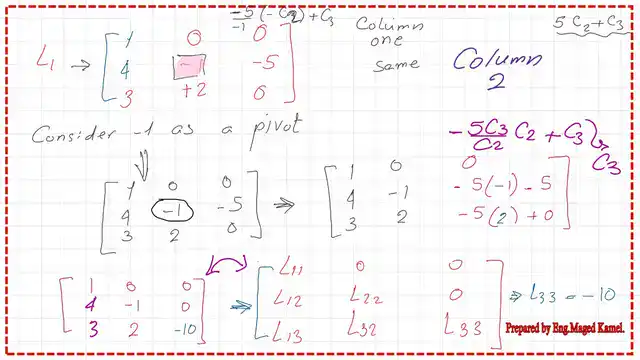 -5/-1 (-C2) + C3
5 C2 + C3
Column
one
same
Column
2
L1 → [ 1 0 0
4 -1 -5
3 +2 0 ]
Consider -1 as a pivot
-5C3/C2 C2 + C3
C3
[ 1 0 0
4 -1 -5
3 2 0 ] ⇒ [ 1 0 0
4 -1 -5(-1) - 5
3 2 -5(2) + 0 ]
[ 1 0 0
4 -1 0
3 2 -10 ] ⇒ [ L11 0 0
L12 L22 0
L13 L32 L33 ] ⇒ L33 = -10
Prepared by Eng.Maged Kamel.